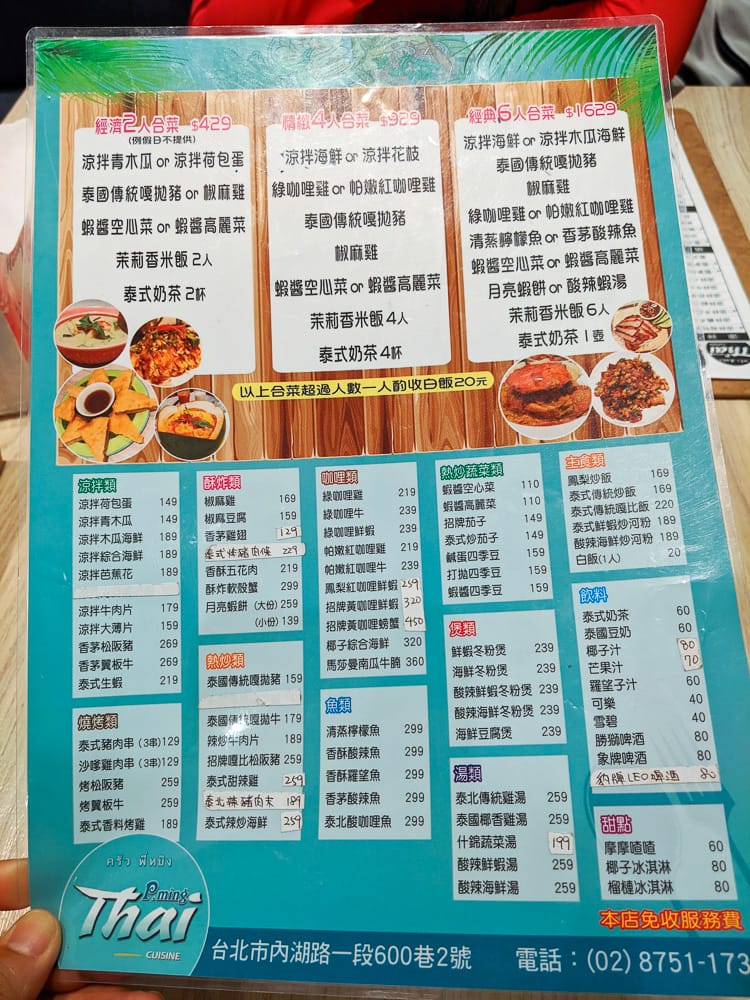 經濟2人合菜 $429
(例假日不提供)
涼拌青木瓜 or 涼拌荷包蛋
泰國傳統嘎拋豬 or 椒麻雞
蝦醬空心菜 or 蝦醬高麗菜
茉莉香米飯 2人
泰式奶茶 2杯
精緻4人合菜 $929
涼拌海鮮 or 涼拌花枝
綠咖哩雞 or 帕嫩紅咖哩雞
泰國傳統嘎拋豬
椒麻雞
蝦醬空心菜 or 蝦醬高麗菜
茉莉香米飯 4人
泰式奶茶 4杯
經典6人合菜 $1629
涼拌海鮮 or 涼拌木瓜海鮮
泰國傳統嘎拋豬
椒麻雞
綠咖哩雞 or 帕嫩紅咖哩雞
清蒸檸檬魚 or 香茅酸辣魚
蝦醬空心菜 or 蝦醬高麗菜
月亮蝦餅 or 酸辣蝦湯
茉莉香米飯 6人
泰式奶茶 1壺
以上合菜超過人數一人酌收白飯20元
涼拌類
涼拌荷包蛋 149
涼拌青木瓜 149
涼拌木瓜海鮮 189
涼拌綜合海鮮 189
涼拌芭蕉花 189
涼拌牛肉片 179
涼拌大薄片 159
香茅松阪豬 269
香茅翼板牛 269
泰式生蝦 219
燒烤類
泰式豬肉串 (3串) 129
沙嗲雞肉串 (3串) 129
烤松阪豬 259
烤翼板牛 259
泰式香料烤雞 189
酥炸類
椒麻雞 169
椒麻豆腐 159
香茅雞翅 129
泰式炸豬肉條 229
香酥五花肉 219
酥炸軟殼蟹 299
月亮蝦餅 (大份) 259
(小份) 139
熱炒類
泰國傳統嘎拋豬 159
泰國傳統嘎拋牛 179
辣炒牛肉片 189
招牌嘎比松阪豬 259
泰式甜辣雞 259
泰北辣豬肉末 189
泰式辣炒海鮮 259
咖哩類
綠咖哩雞 219
綠咖哩牛 239
綠咖哩鮮蝦 239
帕嫩紅咖哩雞 219
帕嫩紅咖哩牛 239
鳳梨紅咖哩鮮蝦 259
招牌黃咖哩鮮蝦 320
招牌黃咖哩螃蟹 450
椰子綜合海鮮 320
馬莎曼南瓜牛腩 360
魚類
清蒸檸檬魚 299
香酥酸辣魚 299
香酥羅望魚 299
香茅酸辣魚 299
泰北酸咖哩魚 299
熱炒蔬菜類
蝦醬空心菜 110
蝦醬高麗菜 110
招牌茄子 149
泰式炒茄子 149
鹹蛋四季豆 159
打拋四季豆 159
蝦醬四季豆 159
煲類
鮮蝦冬粉煲 239
海鮮冬粉煲 239
酸辣鮮蝦冬粉煲 239
酸辣海鮮冬粉煲 239
海鮮豆腐煲 239
湯類
泰北傳統雞湯 259
泰國椰香雞湯 259
什錦蔬菜湯 199
酸辣鮮蝦湯 259
酸辣海鮮湯 259
主食類
鳳梨炒飯 169
泰式傳統炒飯 169
泰式傳統嘎比飯 220
泰式鮮蝦炒河粉 189
酸辣海鮮炒河粉 189
白飯(1人) 20
飲料
泰式奶茶 60
泰國豆奶 60
椰子汁 80
芒果汁 70
羅望子汁 60
可樂 40
雪碧 40
勝獅啤酒 80
象牌啤酒 80
豹牌LEO啤酒 80
甜點
摩摩喳喳 60
椰子冰淇淋 80
榴槤冰淇淋 80
本店免收服務費
ครัว พี่หมิง
P.ming
Thai
CUISINE
台北市內湖路一段600巷2號 電話：(02) 8751-173